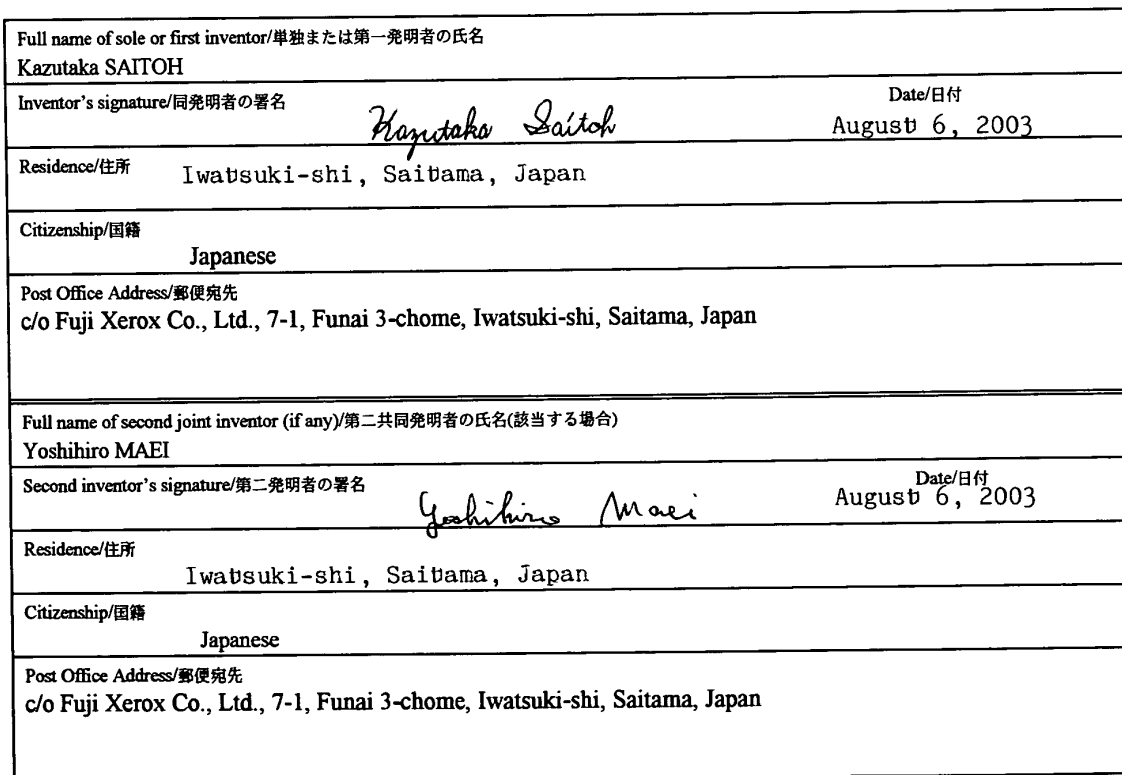 Full name of sole or first inventor/単独または第一発明者の氏名
Kazutaka SAITOH
Inventor's signature/同発明者の署名 Kazutaka Saitoh Date/日付
August 6, 2003
Residence/住所 Iwatsuki-shi, Saitama, Japan
Citizenship/国籍
Japanese
Post Office Address/郵便宛先
c/o Fuji Xerox Co., Ltd., 7-1, Funai 3-chome, Iwatsuki-shi, Saitama, Japan
Full name of second joint inventor (if any)/第二共同発明者の氏名(該当する場合)
Yoshihiro MAEI
Second inventor's signature/第二発明者の署名 Yoshihiro Maei Date/日付
August 6, 2003
Residence/住所
Iwatsuki-shi, Saitama, Japan
Citizenship/国籍
Japanese
Post Office Address/郵便宛先
c/o Fuji Xerox Co., Ltd., 7-1, Funai 3-chome, Iwatsuki-shi, Saitama, Japan